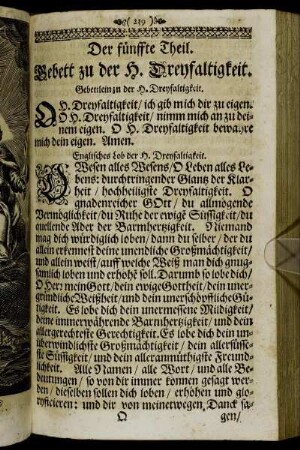 ( 239 )
Der fünffte Theil.
Gebett zu der H. Dreyfaltigkeit.
Gebettlein zu der H. Dreyfaltigkeit.
O H. Dreyfaltigkeit / ich gib mich dir zu eigen.
O H. Dreyfaltigkeit / nimm mich an zu dei-
nem eigen. O H. Dreyfaltigkeit bewahre
mich dein eigen. Amen.
Englisches Lob der H. Dreyfaltigkeit.
O Wesen alles Wesens / O Leben alles Le-
bens: durchtringender Glantz der Klar-
heit / hochheiligste Dreyfaltigkeit. O
gnadenreicher GOtt / du allmögende
Vermöglichkeit / du Ruhe der ewigē Süssigkeit / du
quellende Ader der Barmhertzigkeit. Niemand
mag dich würdiglich loben / dann du selber / der du
allein erkennest deine unendliche Großmächtigkeit /
und allein weist / auff welche Weiß man dich gnug-
samblich loben und erhöhē soll. Darumb so lobe dich /
O Herr mein Gott / dein ewige Gottheit / dein uner-
gründliche Weißheit / und dein unerschöpffliche Gü-
tigkeit. Es lobe dich dein unermessene Mildigkeit /
deine immerwährende Barmhertzigkeit / und dein
allergerechteste Gerechtigkeit. Es lobe dich dein un-
überwindlichste Großmächtigkeit / dein allersüsse-
ste Süssigkeit / und dein alleranmüthigste Freund-
lichkeit. Alle Namen / alle Wort / und alle Be-
deutungen / so von dir immer können gesagt wer-
den / dieselben sollen dich loben / erhöhen und glo-
rificieren: und dir von meinetwegen Danck sa-
Q gen /